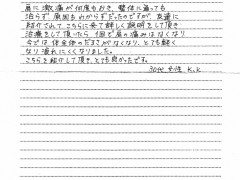 肩に激痛が何度もおき、整体に通っても
治らず、原因もわからずだったのですが、友達に
紹介されて、こちらに来て詳しく説明をして頂き
治療をして頂いたら、1回で肩の痛みはなくなり
今では体全体のだるさがなくなり、とても軽く
なり疲れにくくなりました。
こちらを紹介して頂き、とても良かったです。
30代 女性 K.K